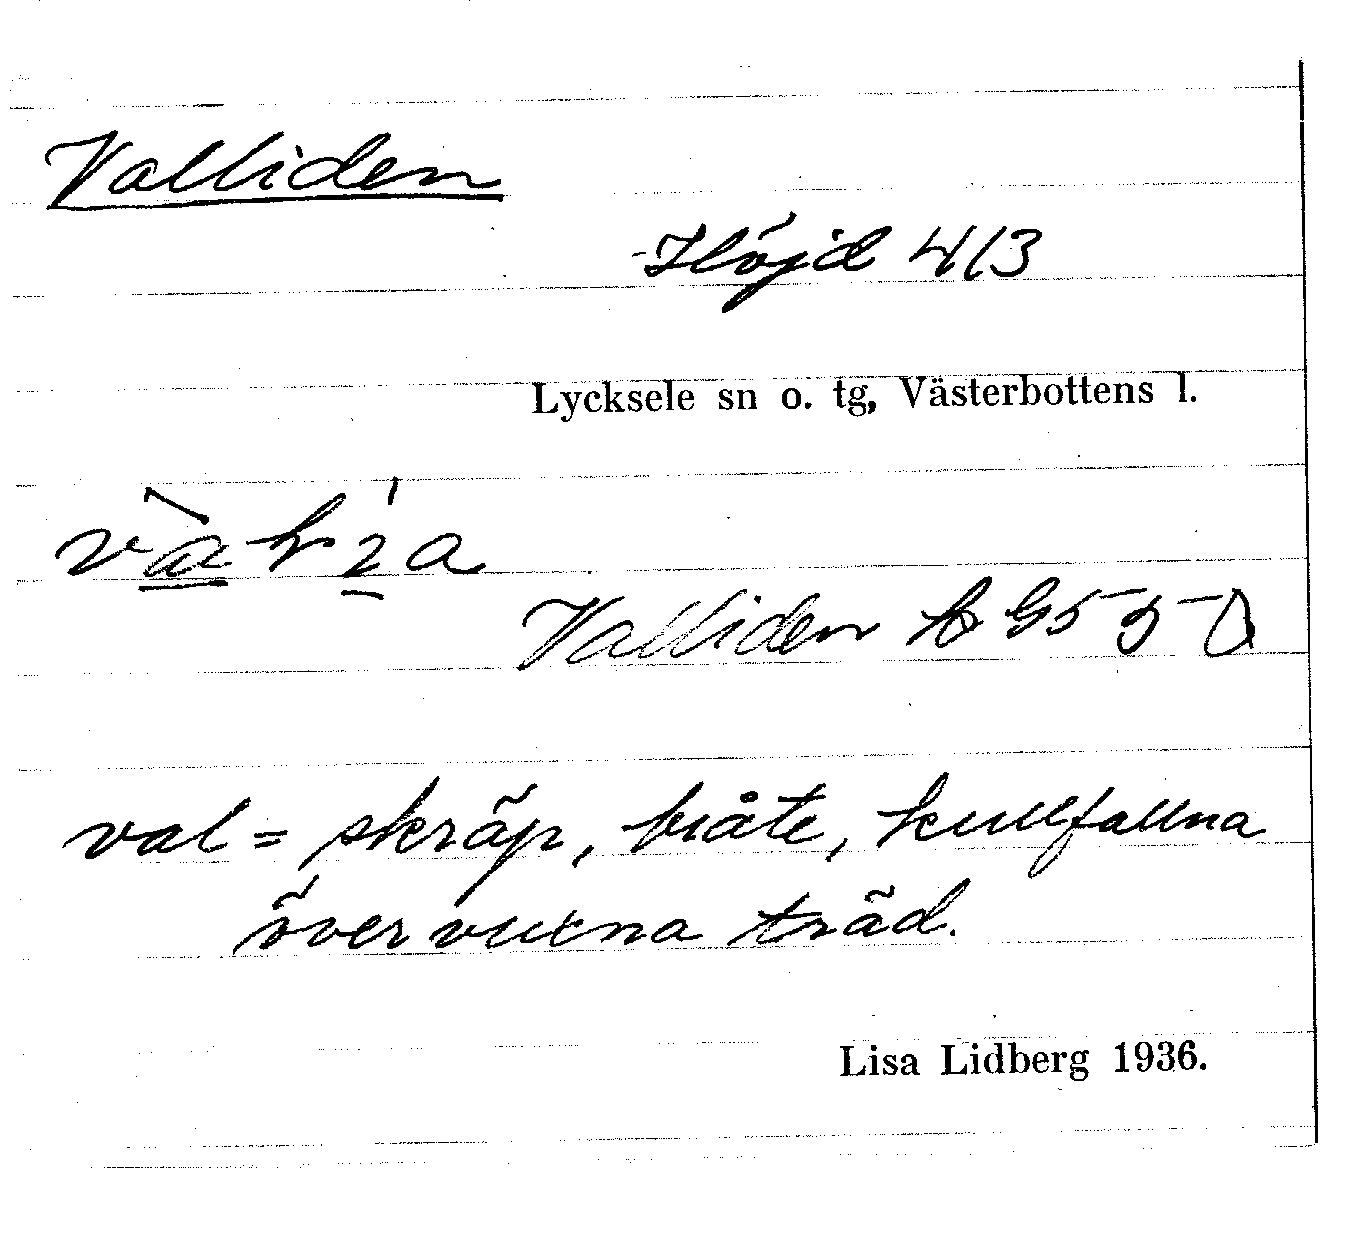 Valliden
Höjd 413
Lycksele sn o. tg, Västerbottens l.
Valliden
val = skräp, bråte, kullfallna
övervuxna träd.
Lisa Lidberg 1936.